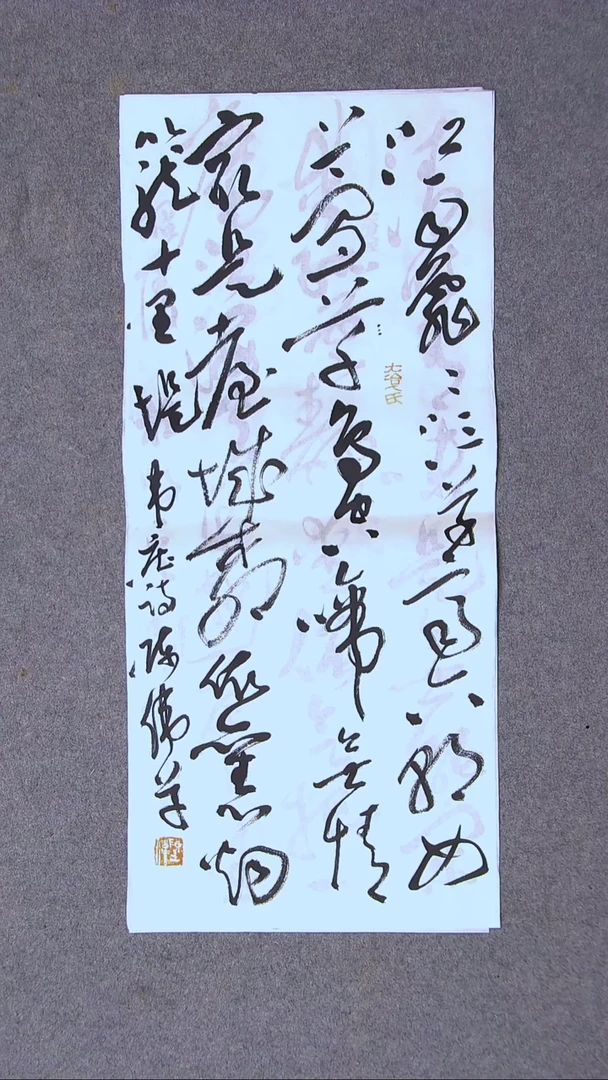 江雨霏霏江草齐六朝如
梦鸟空啼无情
最是臺城柳依旧烟
笼十里堤 韦庄诗 陈伟草